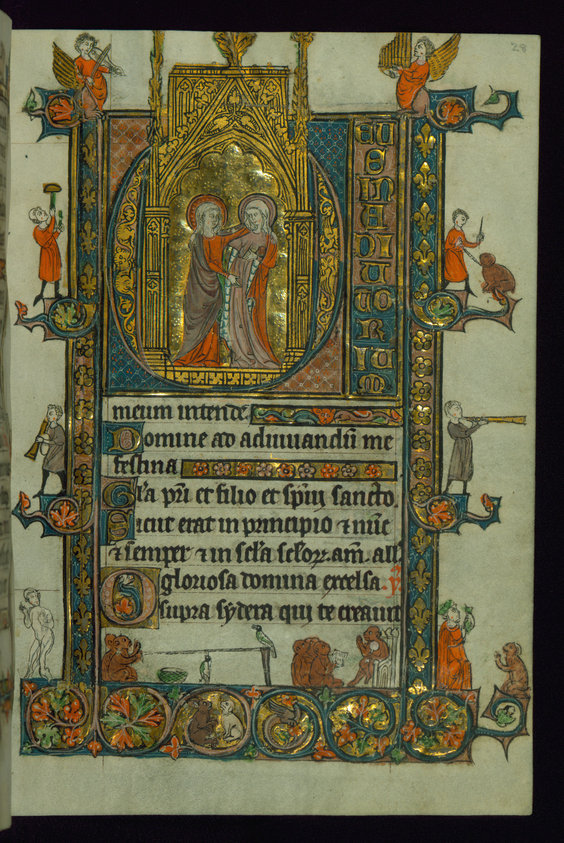 28
DEUS IN ADIUTORIUM
meum intende
Domine ad adiuuandū me
festina
Gła pri et filio et spũi sancto
Sicut erat in principio ⁊ nūc
⁊ semper ⁊ in scła scłoꝝ. am̄. all'
O gloriosa domina excelsa.
supra sydera qui te creauit